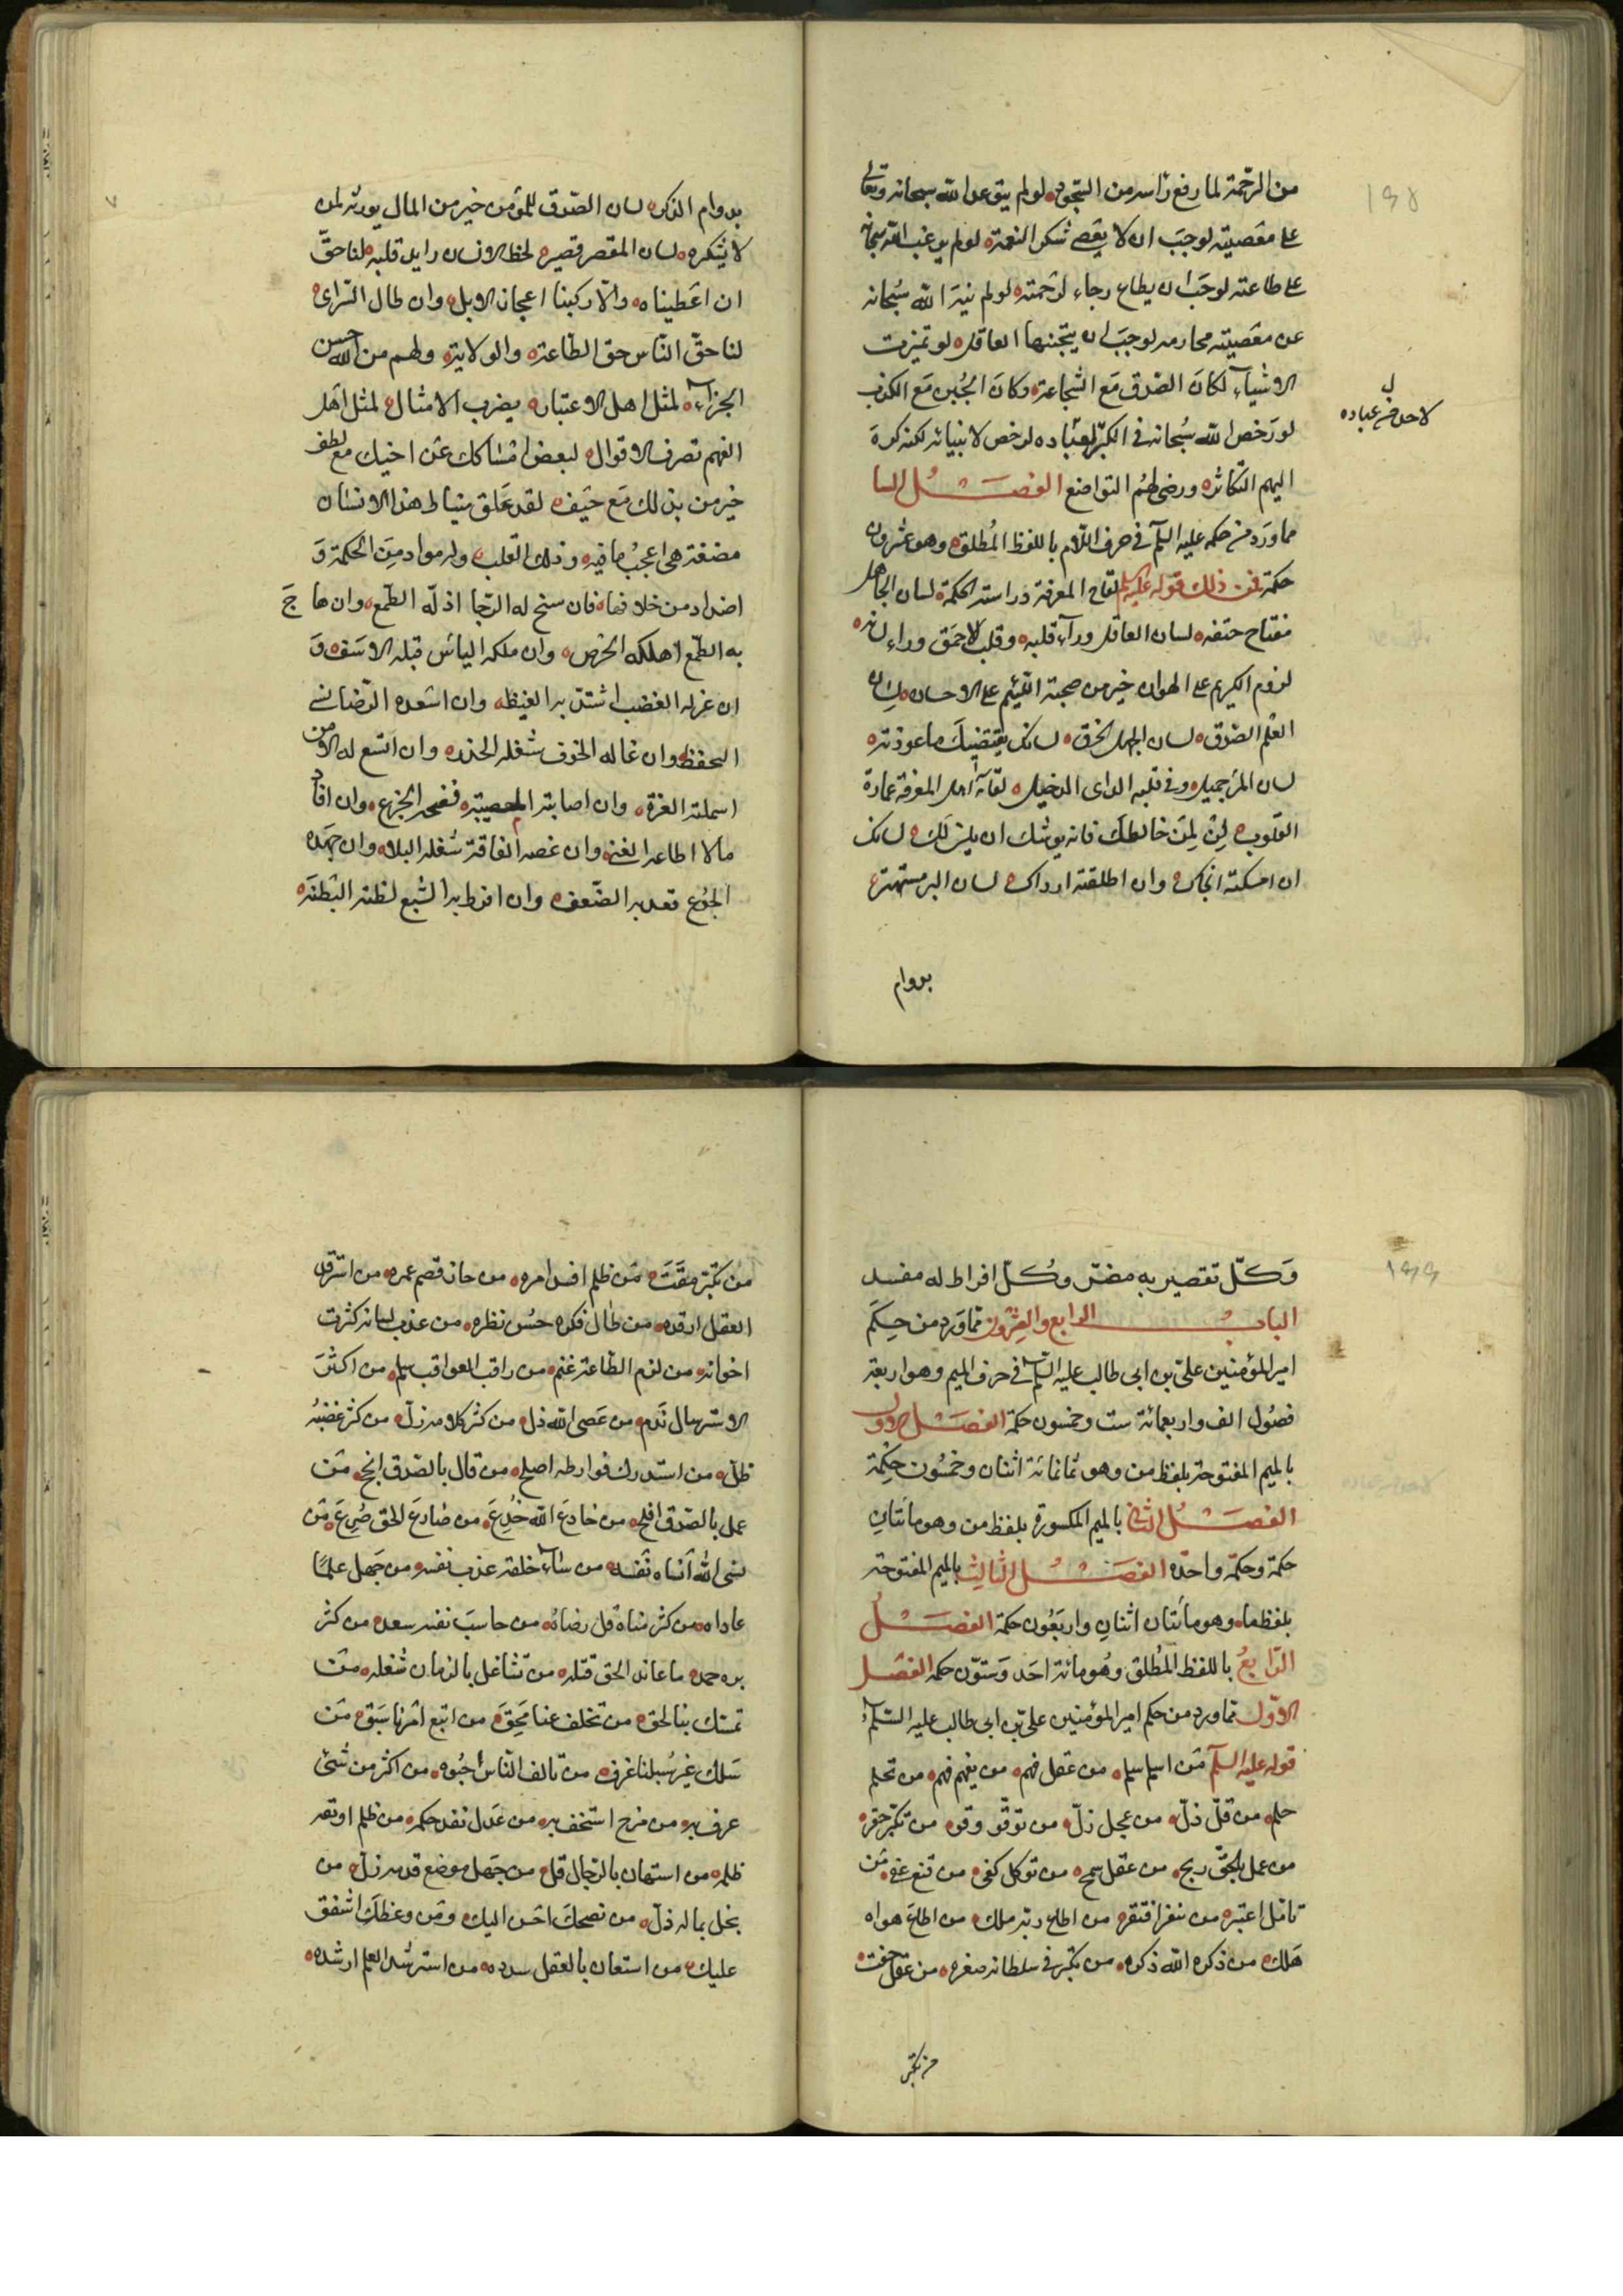 ١٩٨
من الرحمة لما رفع راسه من السجود لو لم يتوعد الله سبحانه وتعالى
على معصيته لوجب ان لا يعصى شكر النعمة لو لم يرغب الله سبحانه
على طاعته لوجب ان يطاع رجاء لرحمته لو لم ينه الله سبحانه
عن معصيته محارمه لوجب ان يتجنبها العاقل لو تميزت
الاشياء لكان الصدق مع الشجاعة وكان الجبن مع الكذب
لو رخص الله سبحانه في الكبر لعباده لرخص لانبيائه لكنه كره
لاحد من عباده
اليهم التكاثر ورضى لهم التواضع الفصل السا
مما ورد من حكمه عليه السلم في حرف اللام باللفظ المطلق وهو عشرون
حكمة فمن ذلك قوله عليه السلم لقاح المعرفة دراسة الحكمة لسان الجاهل
مفتاح حتفه لسان العاقل وراء قلبه وقلب الاحمق وراء لسانه
لزوم الكريم على الهوان خير من صحبة اللئيم على الاحسان لسان
العلم الصدق لسان الجهل الخرق لسانك يقتضيك ما عوذته
لسان المرء جميل وفي قلبه الداى الدخيل لقاء اهل المعرفة عمارة
القلوب لن لمن خالطك فانه يوشك ان يلين لك لسانك
ان امسكته انجاك وان اطلقته ارداك لسان البر مستهتر
بدوام
بدوام الذكر لسان الصدق للمؤمن خير من المال يورثه لمن
لا يشكره لسان المقصر قصير لحظ الانسان رايد قلبه لنا حق
ان اعطيناه والا ركبنا اعجاز الابل وان طال السرى
لنا حق الناس حق الطاعة والولاية ولهم من الله حسن
الجزاء لمثل اهل الاعتبار يضرب الامثال لمثل اهل
الفهم تصرف الاقوال لبعض امساكك عن اخيك مع لطف
خير من بذلك مع حيف لقد علق بنياط هذا الانسان
مضغة هى اعجب ما فيه وذلك القلب وله مواد من الحكمة و
اضداد من خلافها فان سنح له الرجا اذله الطمع وان هاج
به الطمع اهلكه الحرص وان ملكه الياس قتله الاسف و
ان عرله الغضب اشتد به الغيظ وان اسعده الرضا نسى
التحفظ وان غاله الخوف شغله الحذر وان اتسع له الامن
اسملته الغرة وان اصابته المصيبة فضحه الجزع وان افاد
مالا اطاعه الغنى وان عضه الفاقة شغله البلاء وان جهده
الجوع قعد به الضعف وان افرط به الشبع لظته البطنة
١٩٩
وكل تقصير به مضر وكل افراط له مفسد
الباب الرابع والعشرون مما ورد من حكم
امير المؤمنين على بن ابى طالب عليه السلم في حرف الميم وهو اربعة
فصول الف واربعمائة ست وخمسون حكمة الفصل الاول
بالميم المفتوحة بلفظ من وهو ثمانمائة اثنان وخمسون حكمة
الفصل الثانى بالميم المكسورة بلفظ من وهو مأتان
حكمة وحكمة واحده الفصل الثالث بالميم المفتوحة
بلفظ ما وهو مأتان اثنان واربعون حكمة الفصل
الرابع باللفظ المطلق وهو مائة احد وستون حكمه الفصل
الاول مما ورد من حكم امير المؤمنين على بن ابى طالب عليه السلم
قوله عليه السلم من اسلم سلم من عقل فهم من يفهم فهم من تحلم
حلم من قل ذل من عجل زل من توقّر وقر من تكبر حقر
من عمل بالحق ربح من عقل سمح من توكل كفى من قنع غنى من
تامل اعتبر من سفر افتقر من اطاع ربه ملك من اطاع هواه
هلك من ذكر الله ذكره من تكبر في سلطانه صغره من عقل صمت
من تكبر
من تكبر مقت من ظلم افسد امره من جار قصم عمره من استرقد
العقل ارقده من طال فكره حسن نظره من عذب لسانه كثرت
اخوانه من لزم الطاعة غنم من راقب العواقب سلم من اكثر
الاسترسال ندم من عصى الله ذل من كثر كلامه زل من كثر غضبه
ظل من استدرك فوارطه اصلح من قال بالصدق انجح من
عمل بالصدق افلح من خادع الله خدع من صارع الحق صرع من
نسى الله انساه نفسه من ساء خلقه عذب نفسه من جهل علما
عاداه من كثر مناه قل رضائه من حاسب نفسه سعد من كثر
بره حمد ما عاند الحق قتله من تشاغل بالزمان شغله من
تمسك بنا لحق من تخلف عنا محق من اتبع امرنا سبق من
سلك غير سبيلنا غرق من تالف الناس احبوه من اكثر من شئ
عرف به من مزح استخف به من عدل نفذ حكمه من ظلم اوبقه
ظلمه من استهان بالرجال قل من جهل موضع قدمه زل من
بخل بماله ذل من نصحك احسن اليك ومن وعظك اشفق
عليك من استعان بالعقل سدده من استرشد العلم ارشده